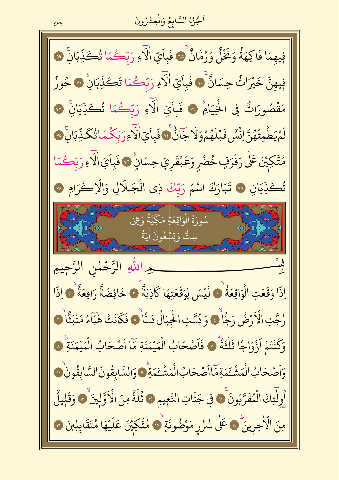 اَلْجُزْءُ السَّابِعُ وَالْعِشْرُونَ
فِيهِمَا فَاكِهَةٌ وَنَخْلٌ وَرُمَّانٌ فَبِاَيِّ اٰلَٓاءِ رَبِّكُمَا تُكَذِّبَانِ
فِيهِنَّ خَيْرَاتٌ حِسَانٌ فَبِاَيِّ اٰلَٓاءِ رَبِّكُمَا تُكَذِّبَانِ حُورٌ
مَقْصُورَاتٌ فِي الْخِيَامِ فَبِاَيِّ اٰلَٓاءِ رَبِّكُمَا تُكَذِّبَانِ
لَمْ يَطْمِثْهُنَّ اِنْسٌ قَبْلَهُمْ وَلَا جَٓانٌّ فَبِاَيِّ اٰلَٓاءِ رَبِّكُمَا تُكَذِّبَانِ
مُتَّكِـِٔينَ عَلٰى رَفْرَفٍ خُضْرٍ وَعَبْقَرِيٍّ حِسَانٍ فَبِاَيِّ اٰلَٓاءِ رَبِّكُمَا
تُكَذِّبَانِ تَبَارَكَ اسْمُ رَبِّكَ ذِي الْجَلَالِ وَالْاِكْرَامِ
سُورَةُ الْوَاقِعَةِ مَكِّيَّةٌ وَهِيَ
سِتٌّ وَتِسْعُونَ اٰيَةً
بِسْمِ اللّٰهِ الرَّحْمٰنِ الرَّحِيمِ
اِذَا وَقَعَتِ الْوَاقِعَةُ لَيْسَ لِوَقْعَتِهَا كَاذِبَةٌ خَافِضَةٌ رَافِعَةٌ اِذَا
رُجَّتِ الْاَرْضُ رَجًّا وَبُسَّتِ الْجِبَالُ بَسًّا فَكَانَتْ هَبَٓاءً مُنْبَثًّا
وَكُنْتُمْ اَزْوَاجًا ثَلٰثَةً فَاَصْحَابُ الْمَيْمَنَةِ مَٓا اَصْحَابُ الْمَيْمَنَةِ
وَاَصْحَابُ الْمَشْـَٔمَةِ مَٓا اَصْحَابُ الْمَشْـَٔمَةِ وَالسَّابِقُونَ السَّابِقُونَ
اُو۬لٰٓئِكَ الْمُقَرَّبُونَ فِي جَنَّاتِ النَّعِيمِ ثُلَّةٌ مِنَ الْاَوَّلِينَ وَقَلِيلٌ
مِنَ الْاٰخِرِينَ عَلٰى سُرُرٍ مَوْضُونَةٍ مُتَّكِـِٔينَ عَلَيْهَا مُتَقَابِلِينَ